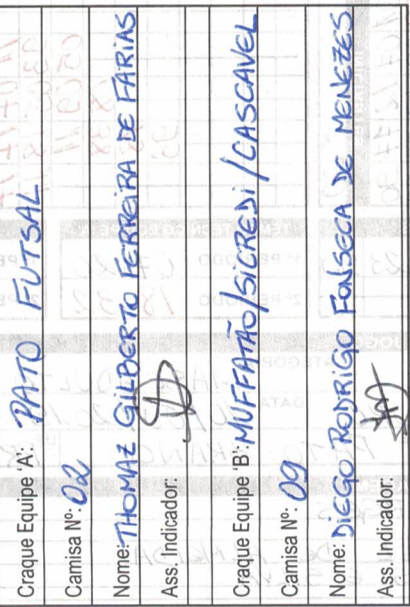 Craque Equipe 'A': PATO FUTSAL
Camisa Nº: 02
Nome: THOMAZ GILBERTO FERREIRA DE FARIAS
Ass. Indicador:
Craque Equipe 'B': MUFFATÃO/SICREDI/CASCAVEL
Camisa Nº: 09
Nome: DIEGO RODRIGO FONSECA DE MENEZES
Ass. Indicador: